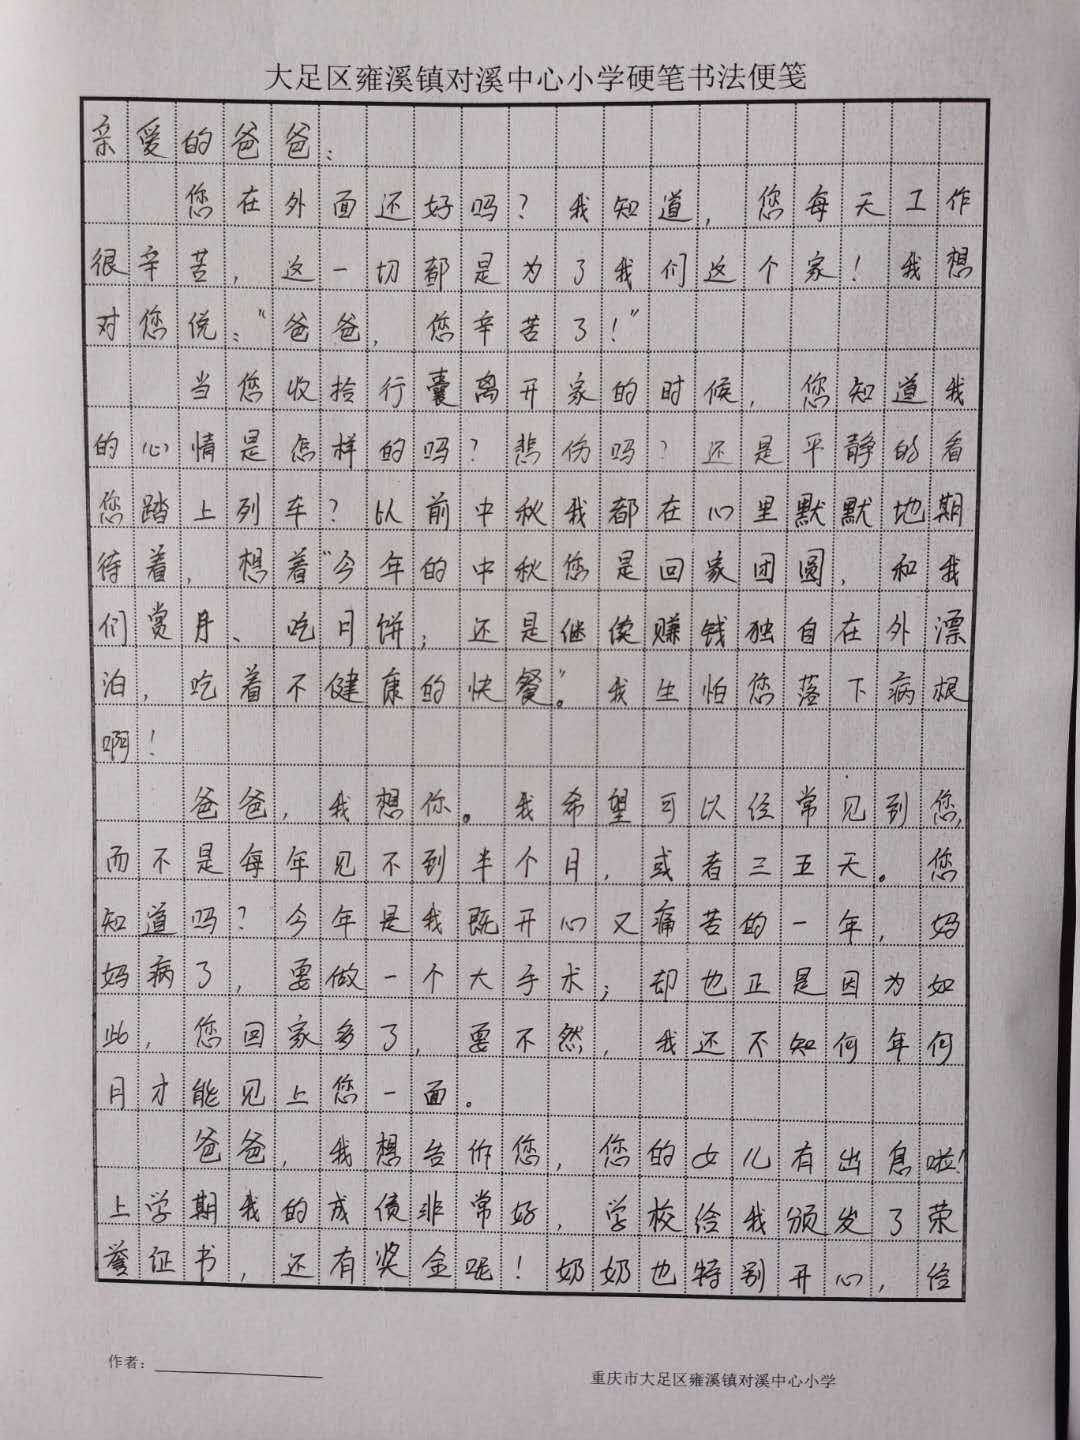 大足区雍溪镇对溪中心小学硬笔书法便笺
亲爱的爸爸：
您在外面还好吗？我知道，您每天工作
很辛苦，这一切都是为了我们这个家！我想
对您说：“爸爸，您辛苦了！”
当您收拾行囊离开家的时候，您知道我
的心情是怎样的吗？悲伤吗？还是平静的看
您踏上列车？以前中秋我都在心里默默地期
待着，想着“今年的中秋您是回家团圆，和我
们赏月、吃月饼；还是继续赚钱独自在外漂
泊，吃着不健康的快餐”。我生怕您落下病根
啊！
爸爸，我想你。我希望可以经常见到您，
而不是每年见不到半个月，或者三五天。您
知道吗？今年是我既开心又痛苦的一年，妈
妈病了，要做一个大手术；却也正是因为如
此，您回家多了，要不然，我还不知何年何
月才能见上您一面。
爸爸，我想告诉您，您的女儿有出息啦！
上学期我的成绩非常好，学校给我颁发了荣
誉证书，还有奖金呢！奶奶也特别开心，给
作者：
重庆市大足区雍溪镇对溪中心小学